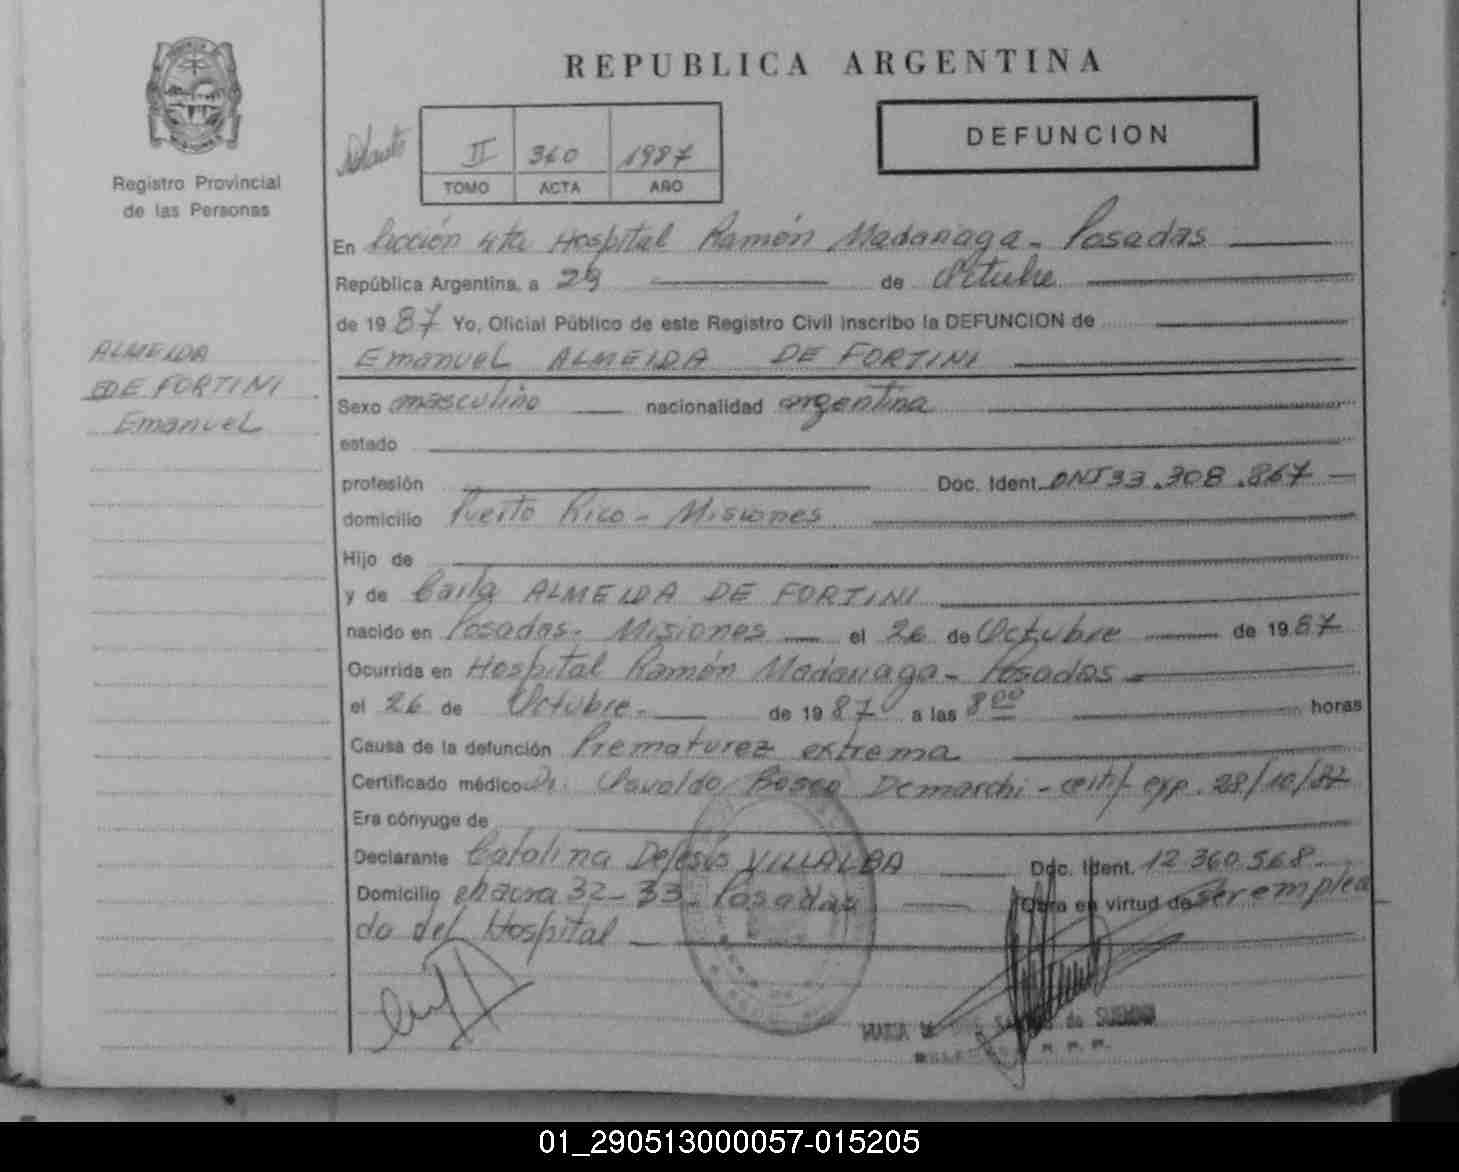 REPUBLICA ARGENTINA
DEFUNCION
II 360 1987
TOMO ACTA AÑO
Registro Provincial
de las Personas
En Sección 4ta Hospital Ramón Madariaga - Posadas
República Argentina, a 29 de Octubre
de 1987 Yo, Oficial Público de este Registro Civil inscribo la DEFUNCION de
Emanuel ALMEIDA DE FORTINI
ALMEIDA
DE FORTINI
Emanuel
Sexo masculino nacionalidad argentina
estado
profesión Doc. Ident. DNI 33.308.867
domicilio Puerto Rico - Misiones
Hijo de
y de Carla ALMEIDA DE FORTINI
nacido en Posadas - Misiones el 26 de Octubre de 1987
Ocurrida en Hospital Ramón Madariaga - Posadas
el 26 de Octubre - de 1987 a las 8 00 horas
Causa de la defunción Prematurez extrema
Certificado médico Dr. Osvaldo Bosco Demarchi - certif exp. 28/10/87
Era cónyuge de
Declarante Catalina DeJesús VILLALBA Doc. Ident. 12.360.568
Domicilio chacra 32-33 - Posadas Obra en virtud de ser emplea
do del Hospital
01_290513000057-015205